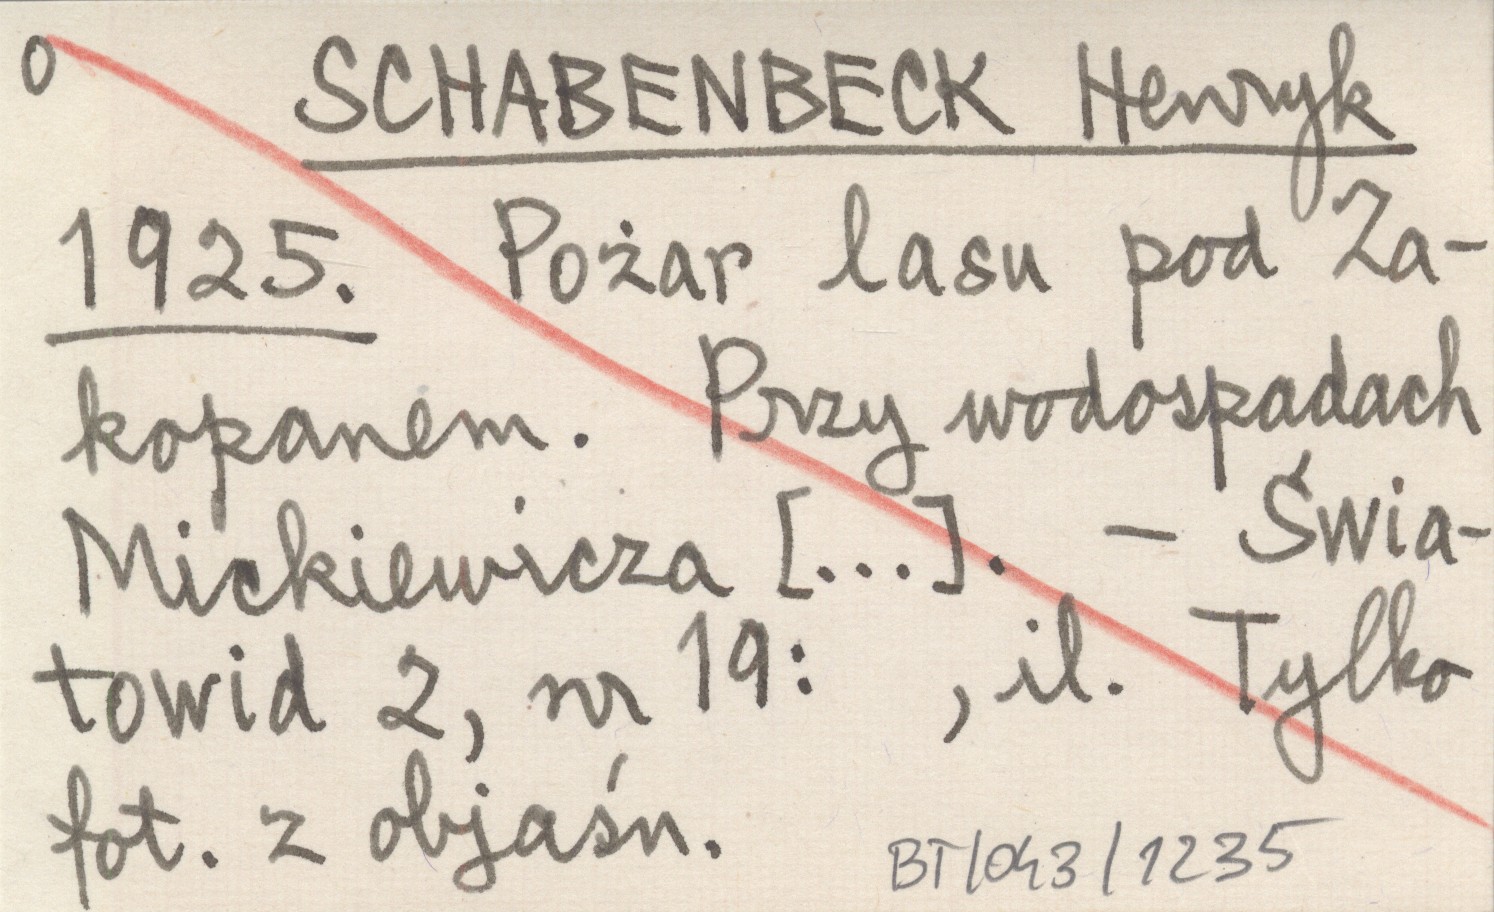 0 SCHABENBECK Henryk
1925. Pożar lasu pod Za-
kopanem. Przy wodospadach
Mickiewicza [...]. – Świa-
towid 2, nr 19: , il. Tylko
fot. z objaśn.
BT/043/1235